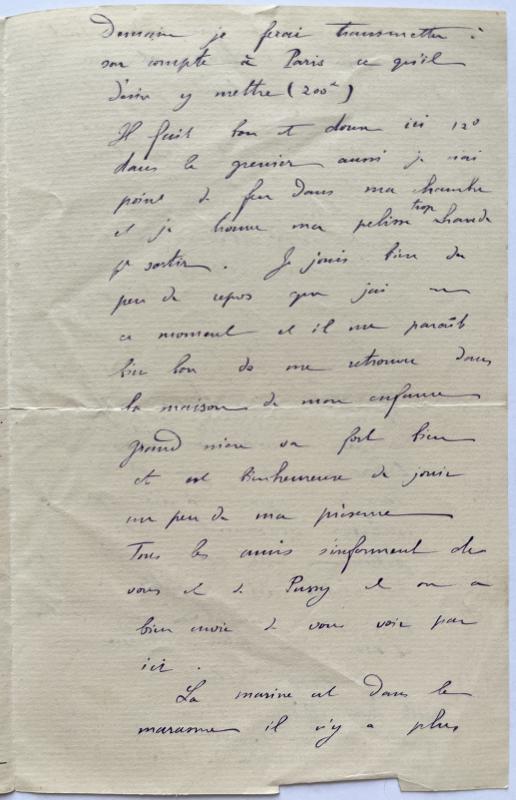 Demain je ferai transmettre à
son compte à Paris ce qu'il
désire y mettre (200 f)
Il fait bon et doux ici 12°
dans le grenier aussi je n'ai
point de feu dans ma chambre
et je trouve ma pelisse trop chaude
pr sortir. Je jouis bien du
peu de repos que j'ai en
ce moment et il me paraît
bien bon de me retrouver dans
la maison de mon enfance
grand mère va fort bien
et est bienheureuse de jouir
un peu de ma présence
Tous les amis s'informent de
vous et de Pussy et on a
bien envie de vous voir par
ici.
La marine est dans le
marasme il n'y a plus